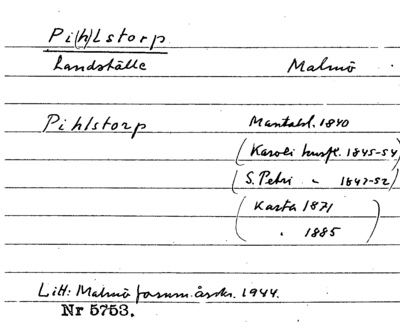 Pi(h)lstorp
Landställe Malmö
Pihlstorp Mantalsl. 1840
(Karoli husfl. 1845-54)
(S. Petri " 1847-52)
(Karta 1871
" 1885)
Litt: Malmö fornm. årsskr. 1944.
Nr 5753.